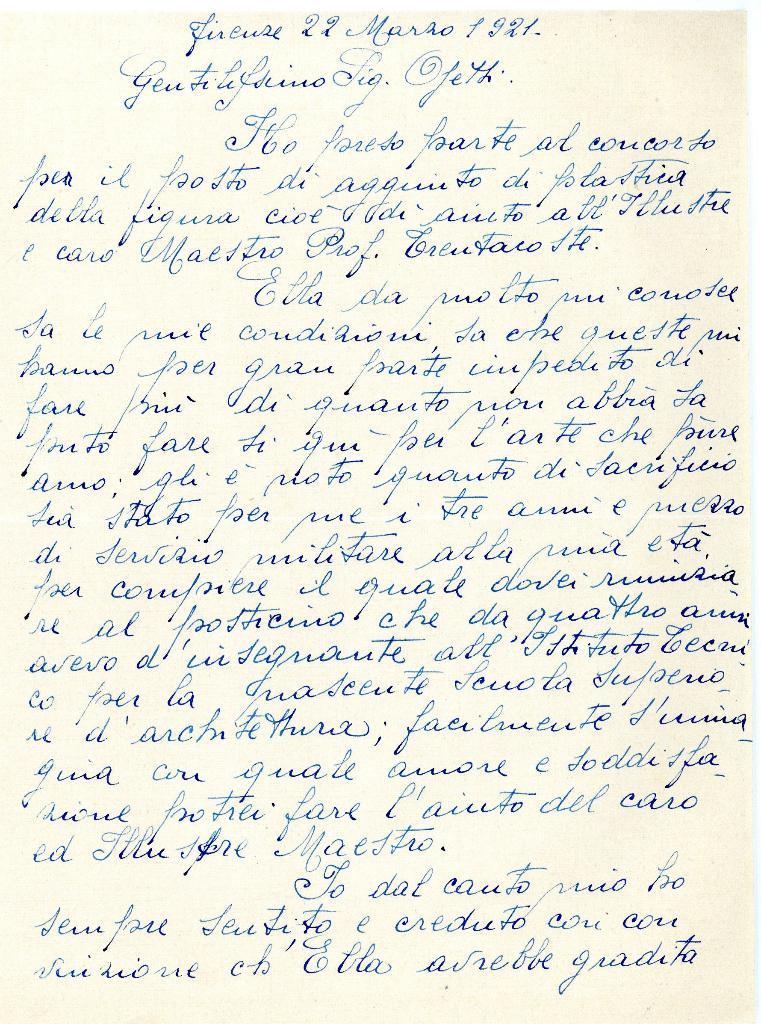 Firenze 22 Marzo 1921.
Gentilissimo Sig. Ojetti.
Ho preso parte al concorso
per il posto di aggiunto di plastica
della figura cioè di aiuto all'Illustre
e caro Maestro Prof. Trentacoste.
Ella da molto mi conosce
sa le mie condizioni, sa che queste mi
hanno per gran parte impedito di
fare più di quanto non abbia sa
puto fare si qui per l'arte che pure
amo; gli è noto quanto di sacrificio
sia stato per me i tre anni e mezzo
di servizio militare alla mia età,
per compiere il quale dovei rinunzia
re al posticino che da quattro anni
avevo d'insegnante all'Istituto Tecni
co per la nascente Scuola Superio-
re d'architettura; facilmente s'imma-
gina con quale amore e soddisfa-
zione potrei fare l'aiuto del caro
ed Illustre Maestro.
Io dal canto mio ho
sempre sentito e creduto con con
vinzione ch'Ella avrebbe gradita